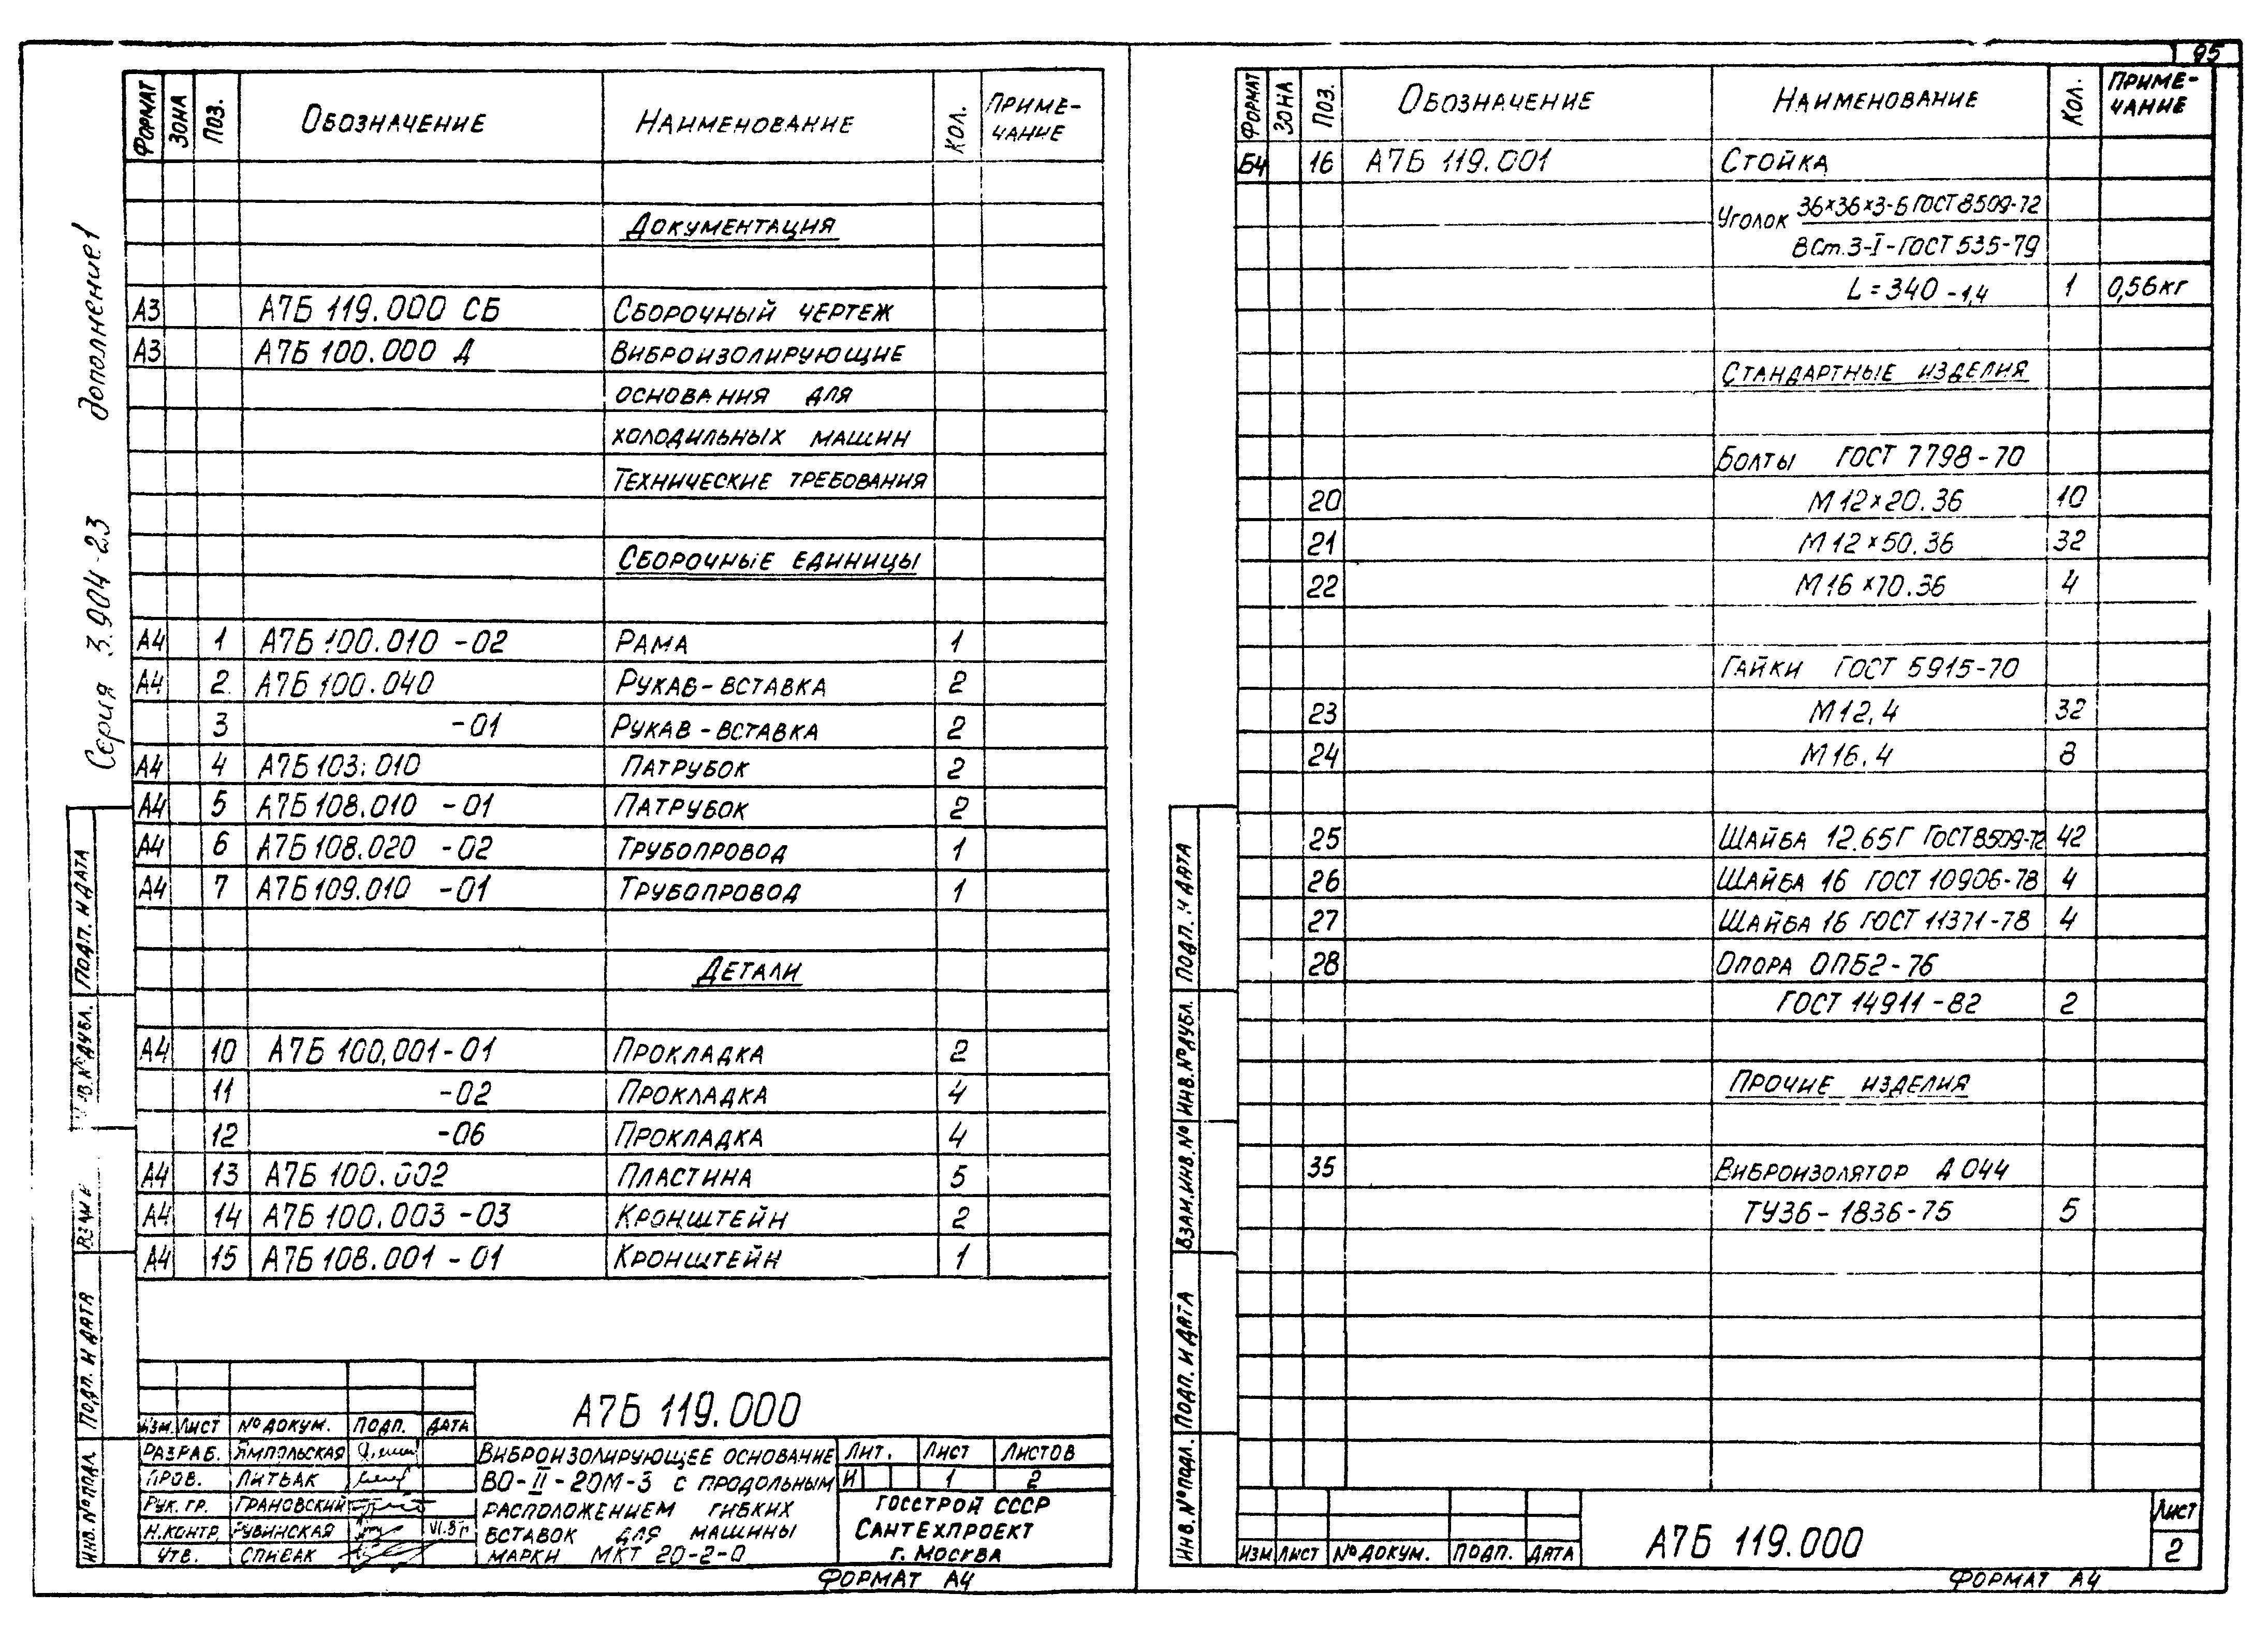 95
дополнение 1
Серия 3.904-23
ФОРМАТ ЗОНА ПОЗ. ОБОЗНАЧЕНИЕ НАИМЕНОВАНИЕ КОЛ. ПРИМЕ-
ЧАНИЕ
ДОКУМЕНТАЦИЯ
А3 А7Б 119.000 СБ СБОРОЧНЫЙ ЧЕРТЕЖ
А3 А7Б 100.000 Д ВИБРОИЗОЛИРУЮЩИЕ
ОСНОВАНИЯ ДЛЯ
ХОЛОДИЛЬНЫХ МАШИН
ТЕХНИЧЕСКИЕ ТРЕБОВАНИЯ
СБОРОЧНЫЕ ЕДИНИЦЫ
А4 1 А7Б 100.010 -02 РАМА 1
А4 2 А7Б 100.040 РУКАВ-ВСТАВКА 2
3 -01 РУКАВ-ВСТАВКА 2
А4 4 А7Б 103.010 ПАТРУБОК 2
А4 5 А7Б 108.010 -01 ПАТРУБОК 2
А4 6 А7Б 108.020 -02 ТРУБОПРОВОД 1
А4 7 А7Б 109.010 -01 ТРУБОПРОВОД 1
ДЕТАЛИ
А4 10 А7Б 100.001-01 ПРОКЛАДКА 2
11 -02 ПРОКЛАДКА 4
12 -06 ПРОКЛАДКА 4
А4 13 А7Б 100.002 ПЛАСТИНА 5
А4 14 А7Б 100.003 -03 КРОНШТЕЙН 2
А4 15 А7Б 108.001 -01 КРОНШТЕЙН 1
ПОДП. И ДАТА
ИНВ.№ ДУБЛ.
ПОДП. И ДАТА
ИНВ.№ ПОДЛ.
А7Б 119.000
ИЗМ. ЛИСТ № ДОКУМ. ПОДП. ДАТА
РАЗРАБ. ЯМПОЛЬСКАЯ
ПРОВ. ЛИТВАК
РУК. ГР. ГРАНОВСКИЙ
Н.КОНТР. РУВИНСКАЯ
УТВ. СПИВАК
ВИБРОИЗОЛИРУЮЩЕЕ ОСНОВАНИЕ
ВО-II-20М-3 С ПРОДОЛЬНЫМ
РАСПОЛОЖЕНИЕМ ГИБКИХ
ВСТАВОК ДЛЯ МАШИНЫ
МАРКИ МКТ 20-2-0
ЛИТ. ЛИСТ ЛИСТОВ
И 1 2
ГОССТРОЙ СССР
САНТЕХПРОЕКТ
г. МОСКВА
ФОРМАТ А4
ФОРМАТ ЗОНА ПОЗ. ОБОЗНАЧЕНИЕ НАИМЕНОВАНИЕ КОЛ. ПРИМЕ-
ЧАНИЕ
Б4 16 А7Б 119.001 СТОЙКА
УГОЛОК 36×36×3-Б ГОСТ 8509-72
ВСт.3-I-ГОСТ 535-79
L=340 -1,4 1 0,56кг
СТАНДАРТНЫЕ ИЗДЕЛИЯ
БОЛТЫ ГОСТ 7798-70
20 М12×20.36 10
21 М12×50.36 32
22 М16×70.36 4
ГАЙКИ ГОСТ 5915-70
23 М12.4 32
24 М16.4 8
25 ШАЙБА 12.65Г ГОСТ 8509-72 42
26 ШАЙБА 16 ГОСТ 10906-78 4
27 ШАЙБА 16 ГОСТ 11371-78 4
28 ОПОРА ОПБ2-76
ГОСТ 14911-82 2
ПРОЧИЕ ИЗДЕЛИЯ
35 ВИБРОИЗОЛЯТОР Д 044
ТУ36-1836-75 5
ПОДП. И ДАТА
ИНВ.№ ДУБЛ.
ВЗАМ.ИНВ.№
ПОДП. И ДАТА
ИНВ.№ ПОДЛ.
ИЗМ ЛИСТ № ДОКУМ. ПОДП. ДАТА
А7Б 119.000
ЛИСТ
2
ФОРМАТ А4